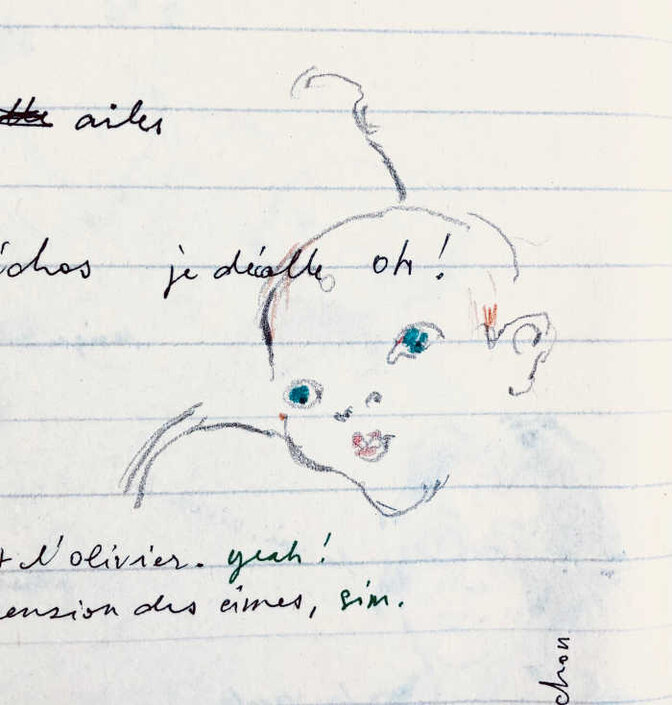 ailes
échos je décolle oh !
t l'olivier. yeah !
ension des cimes, sim.
chon